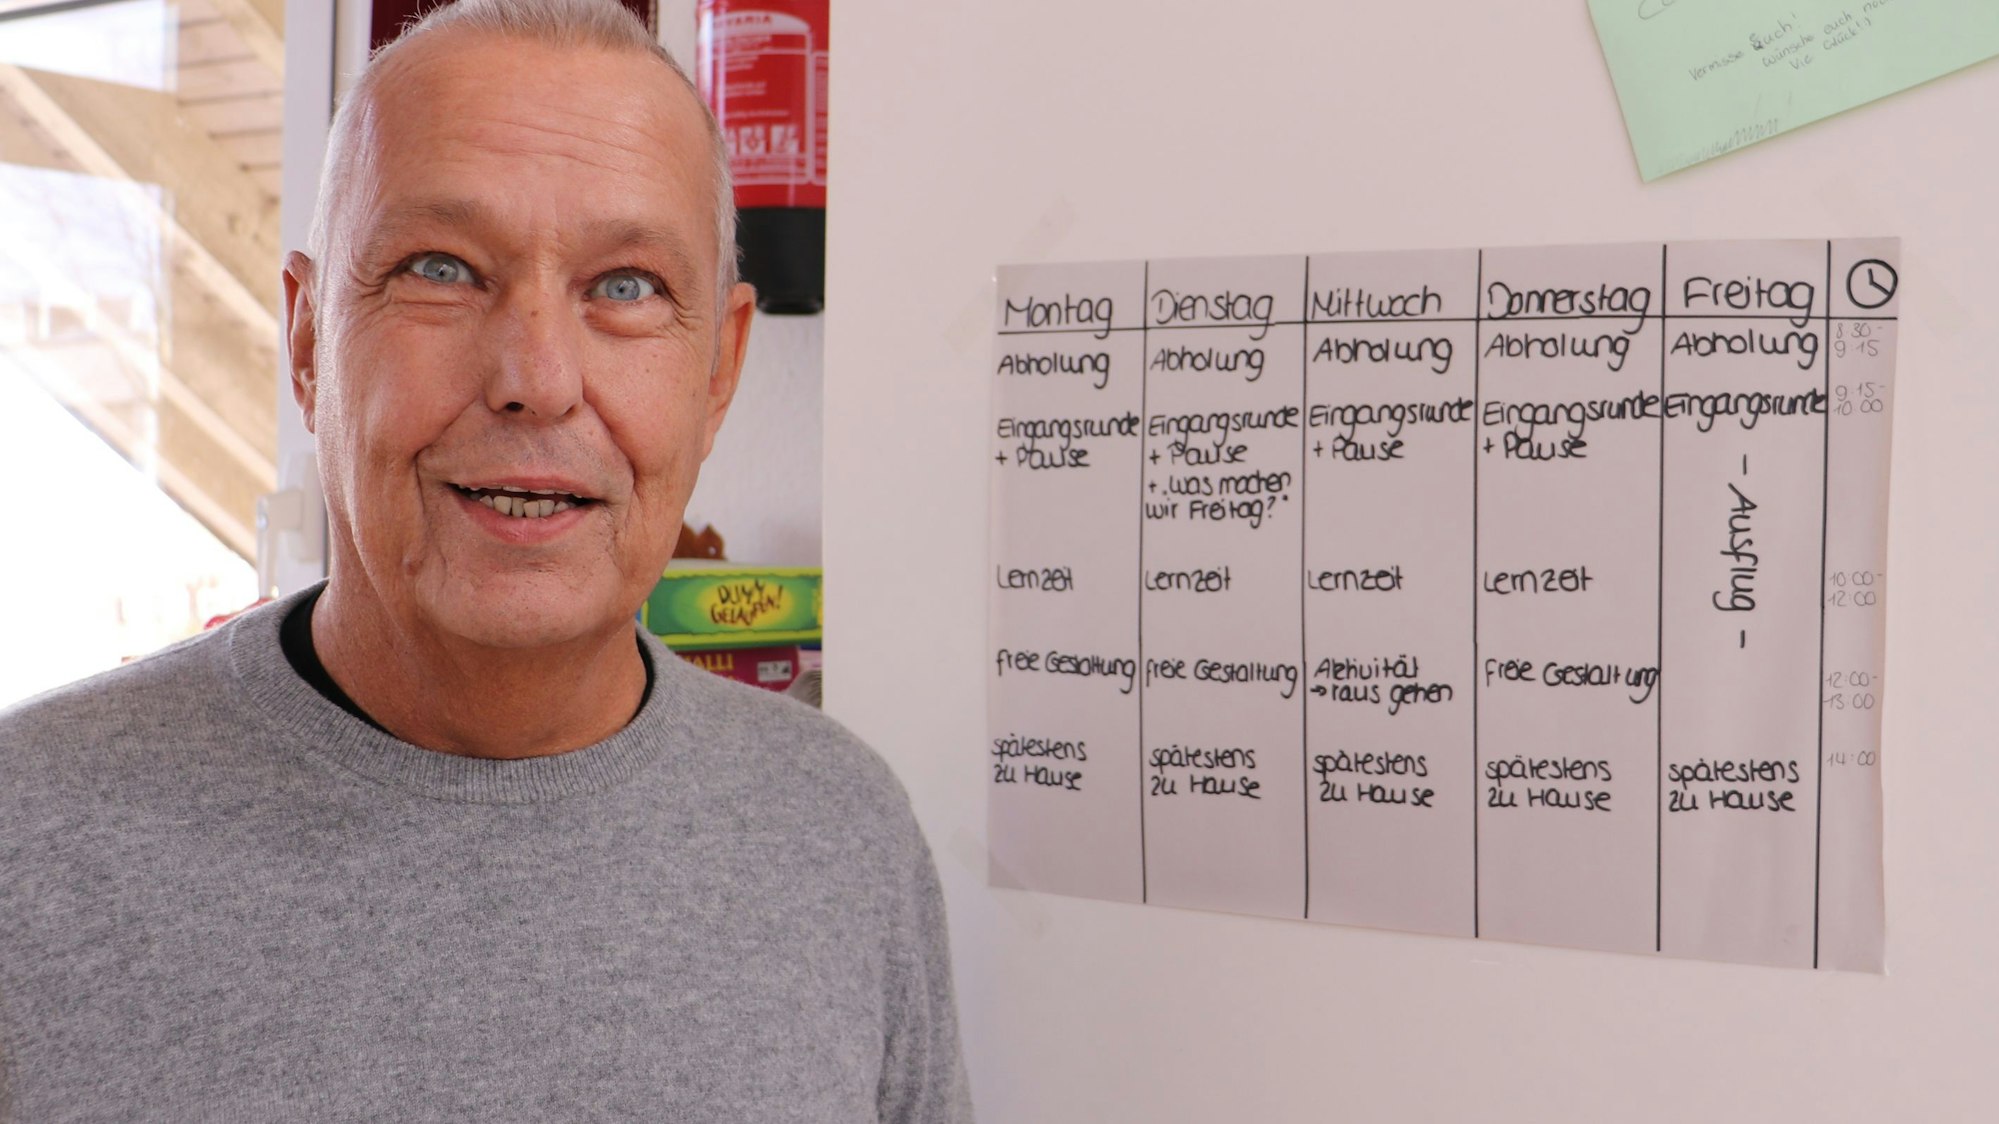 Vermisse Euch!
wünsche euch noch
Glück!:)
Montag
Dienstag
Mittwoch
Donnerstag
Freitag
Abholung
Abholung
Abholung
Abholung
Abholung
8:30-
9:15
Eingangsrunde
+ Pause
Eingangsrunde
+ Pause
+ „was machen
wir Freitag?"
Eingangsrunde
+ Pause
Eingangsrunde
+ Pause
Eingangsrunde
- Ausflug -
9:15-
10:00
Lernzeit
Lernzeit
Lernzeit
Lernzeit
10:00-
12:00
freie Gestaltung
freie Gestaltung
Aktivität
→ raus gehen
Freie Gestaltung
12:00-
13:00
spätestens
zu Hause
spätestens
zu Hause
spätestens
zu Hause
spätestens
zu Hause
spätestens
zu Hause
14:00
DUMM
GELAUFEN!